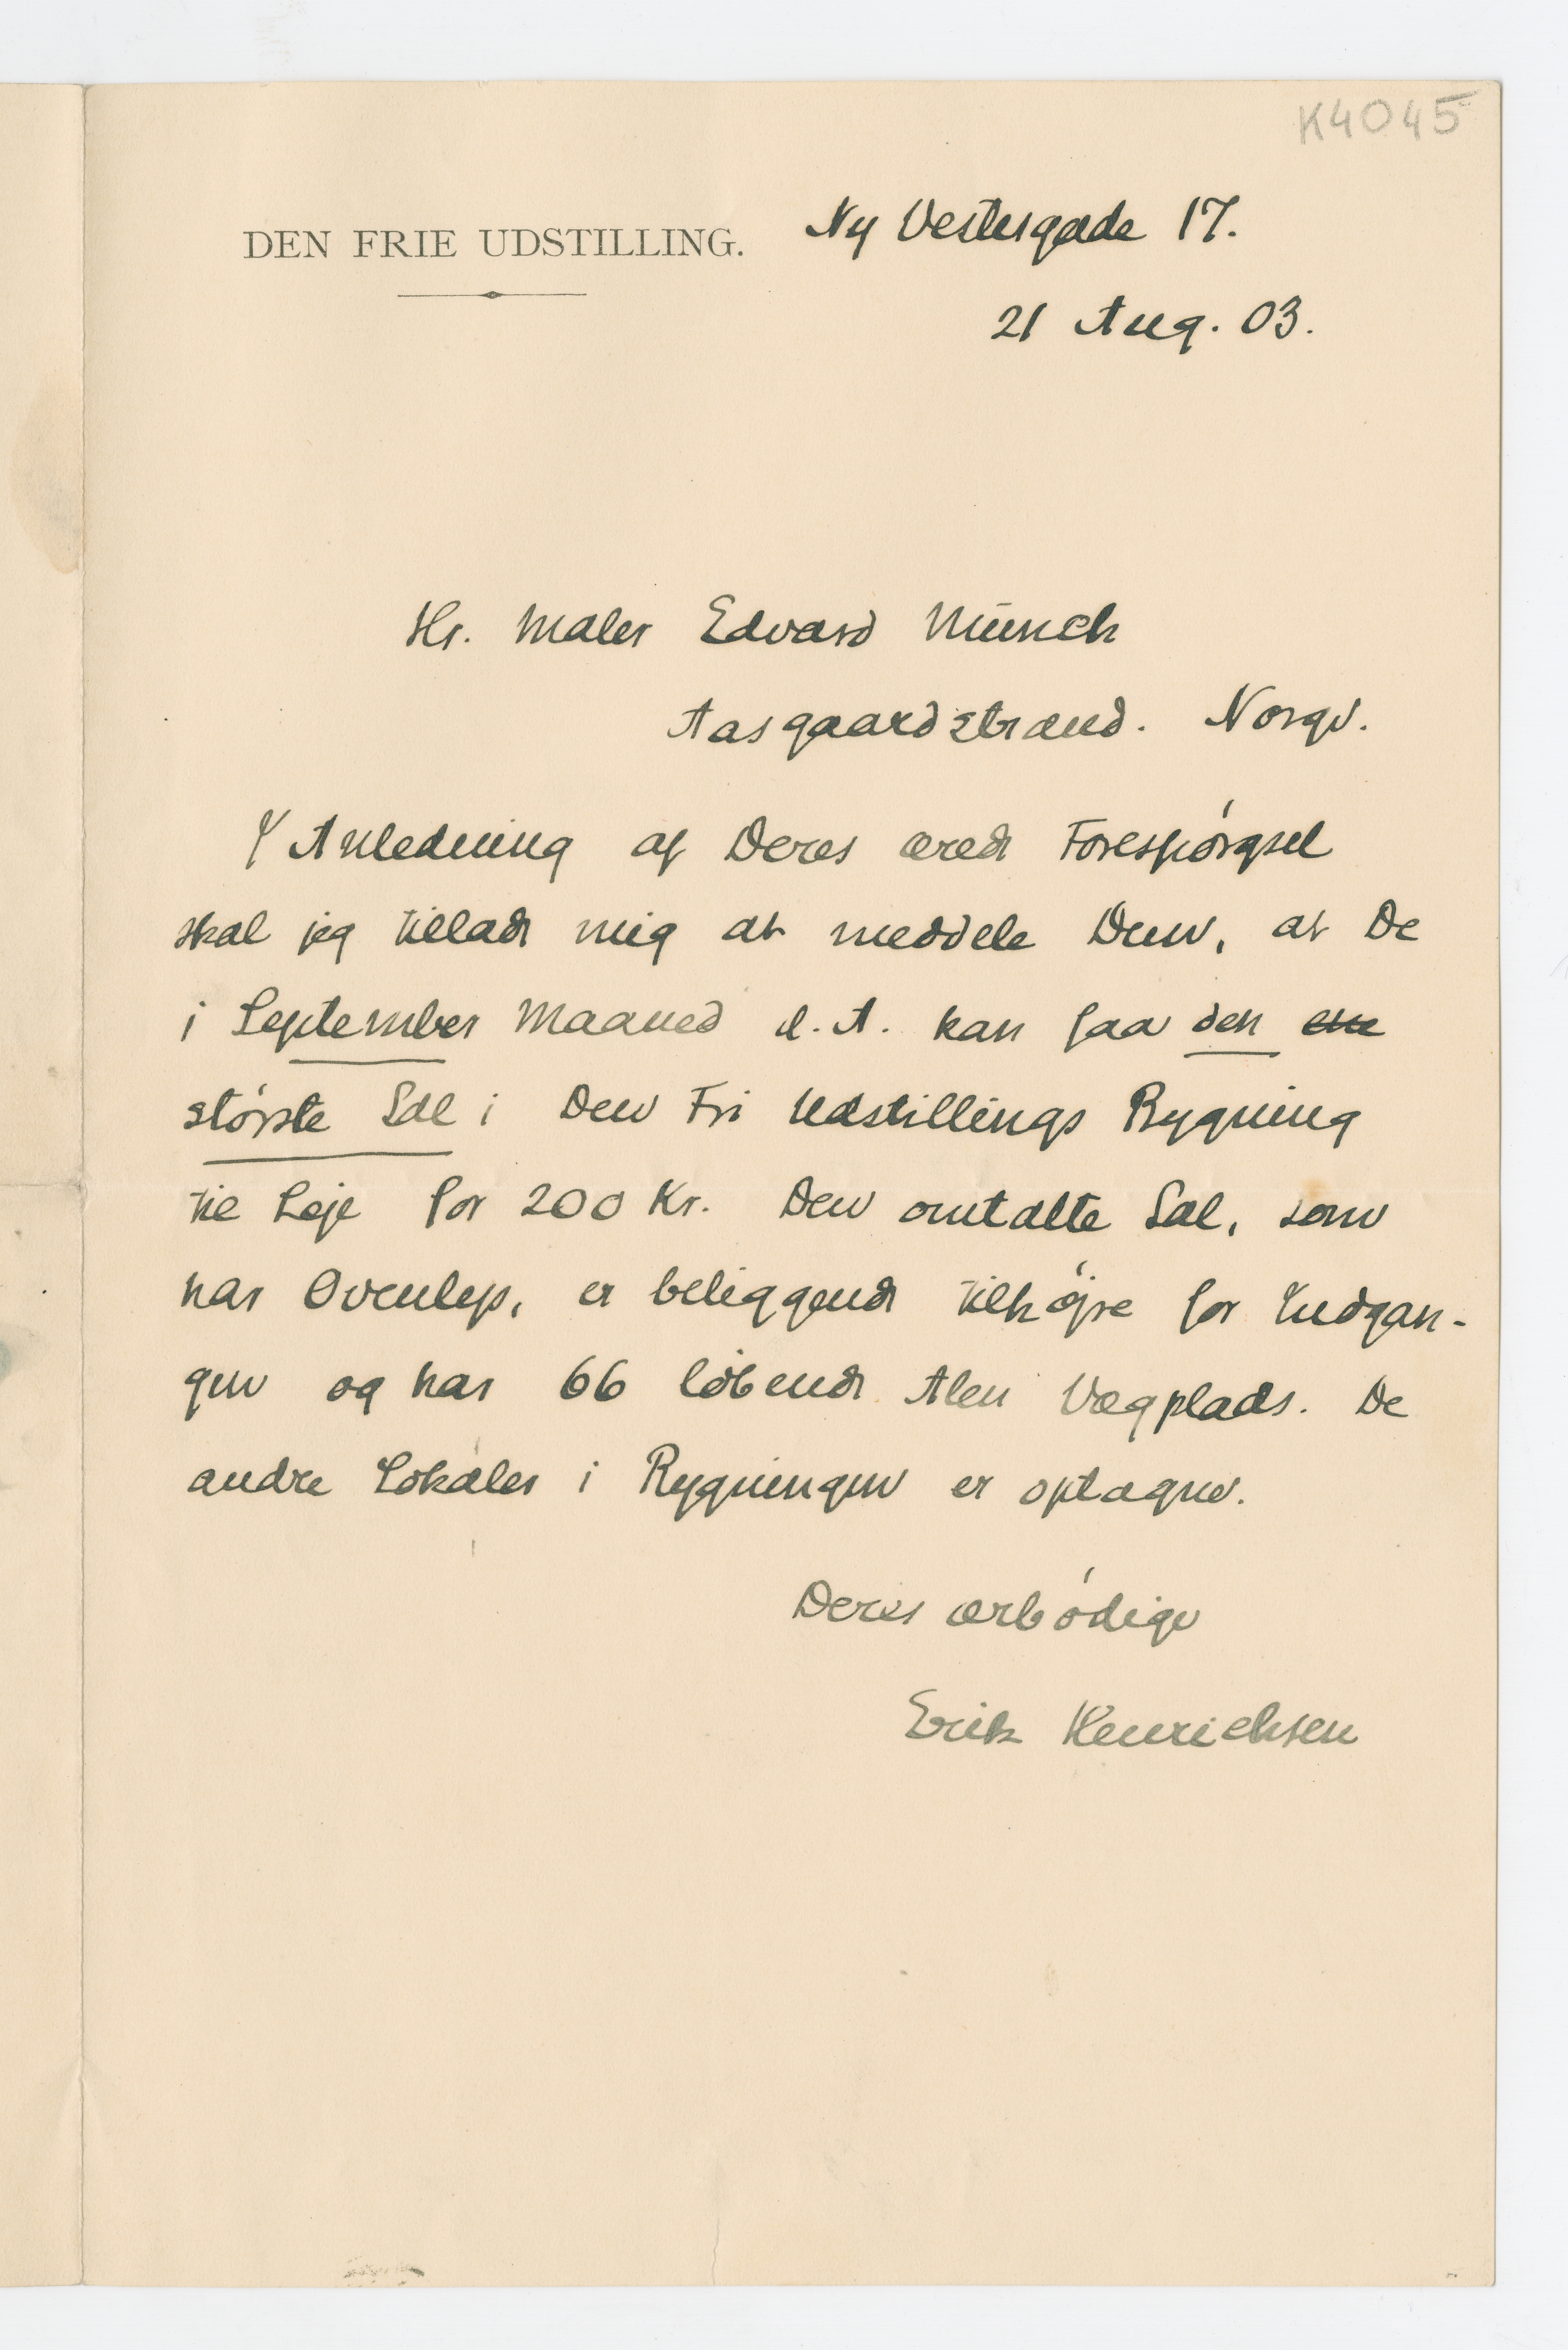 K4045
DEN FRIE UDSTILLING. Ny Vestergade 17.
21 Aug. 03.
Hr. Maler Edvard Münch
Aasgaardstrand. Norge.
I Anledning af Deres ærede Forespórgsel
skal jeg tillade mig at meddele Dem, at De
i September Maaned d. A. kan faa den ene
störste Sal i Den Fri Udstillings Bygning
til Leje for 200 Kr. Den omtalte Sal, som
har Ovenlys, er beliggende tilhójre for Indgan-
gen og har 66 löbende Alen Vægplads. De
andre Lokaler i Bygningen er optagne.
Deres ærbódige
Erik Henrichsen